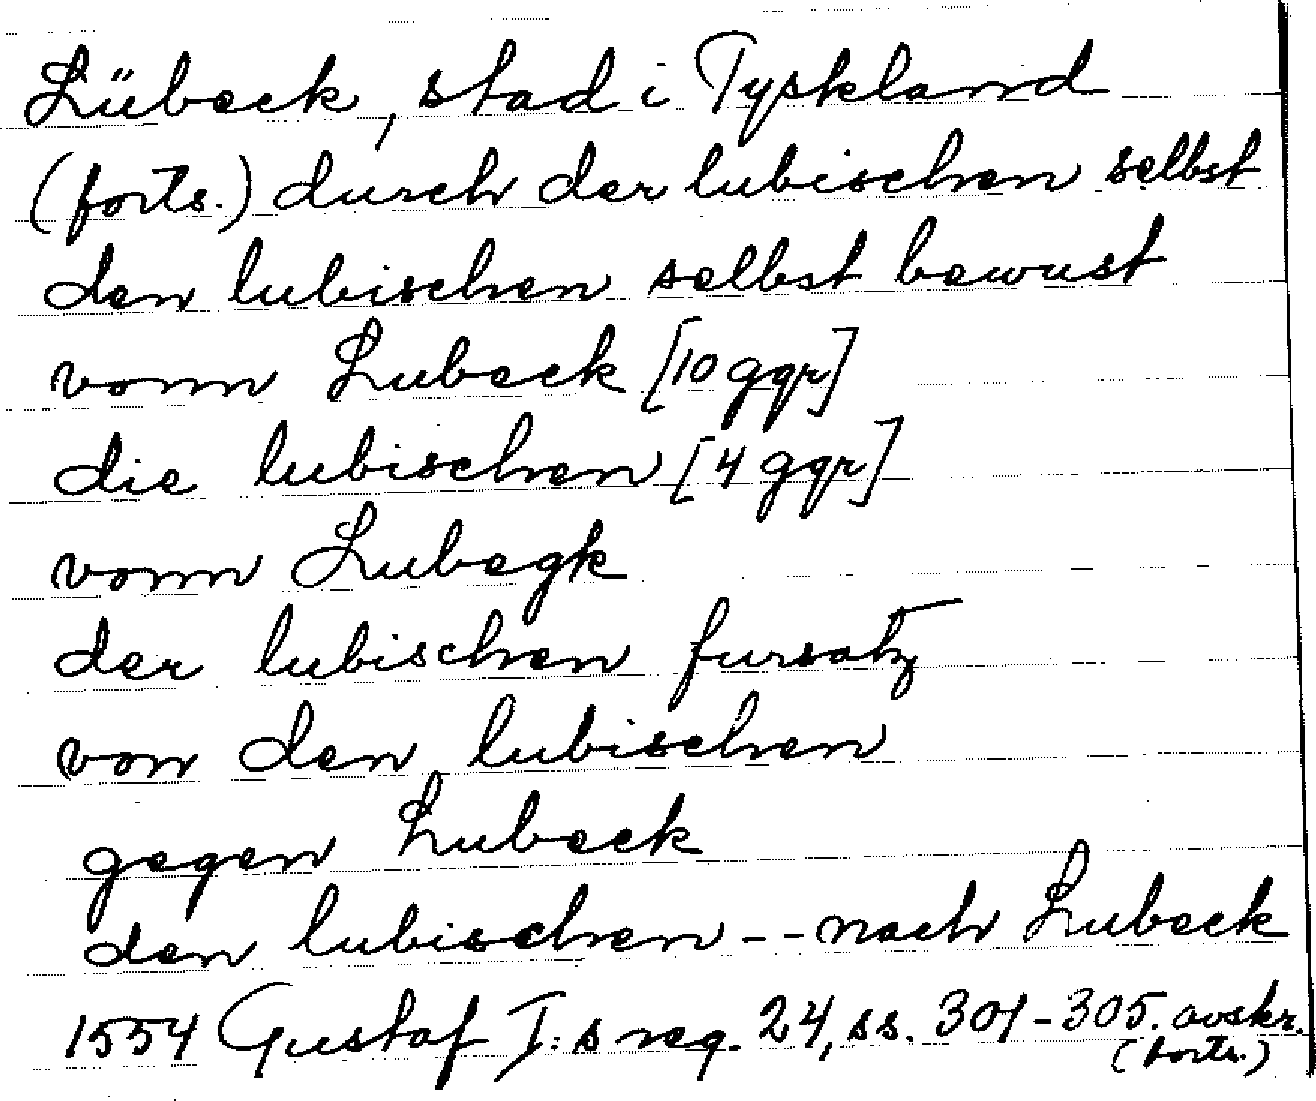 Lübeck, stad i Tyskland
(forts.) durch der lubischen selbst
den lubischen selbst bewust
vonn Lubeck [10 ggr]
die lubischen [4 ggr]
vonn Lubegk
der lubischen fursatz
von den lubischen
gegen Lubeck
den lubischen -- nach Lubeck
1554 Gustaf I:s reg. 24, ss. 301-305. avskr.
(forts.)